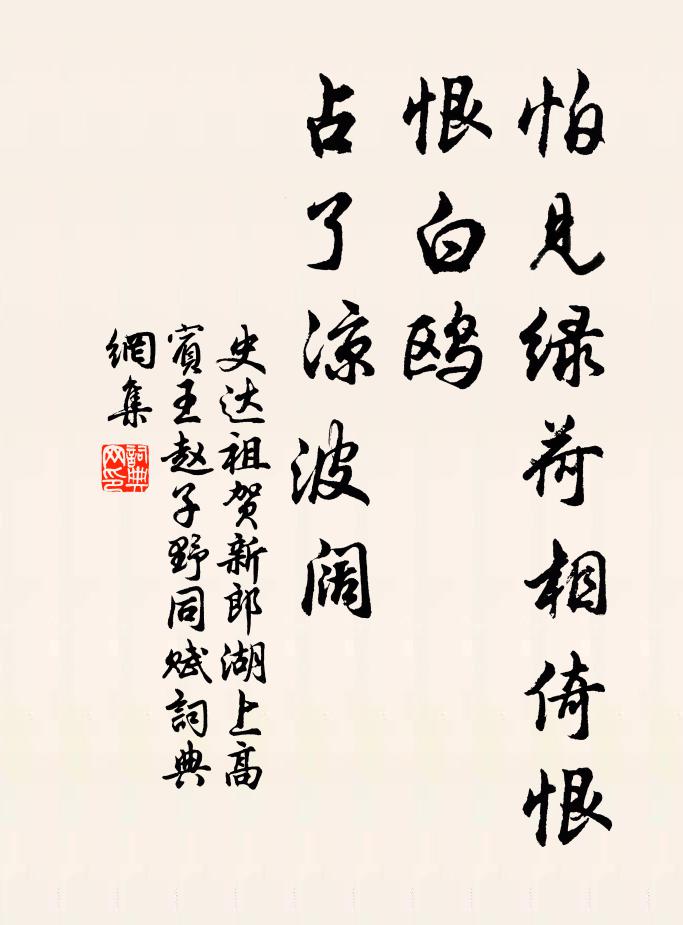 怕见绿荷相倚恨
恨白鸥
占了凉波阔
史达祖贺新郎湖上高
賓王赵子野同赋詞典
網集
詞典
网印